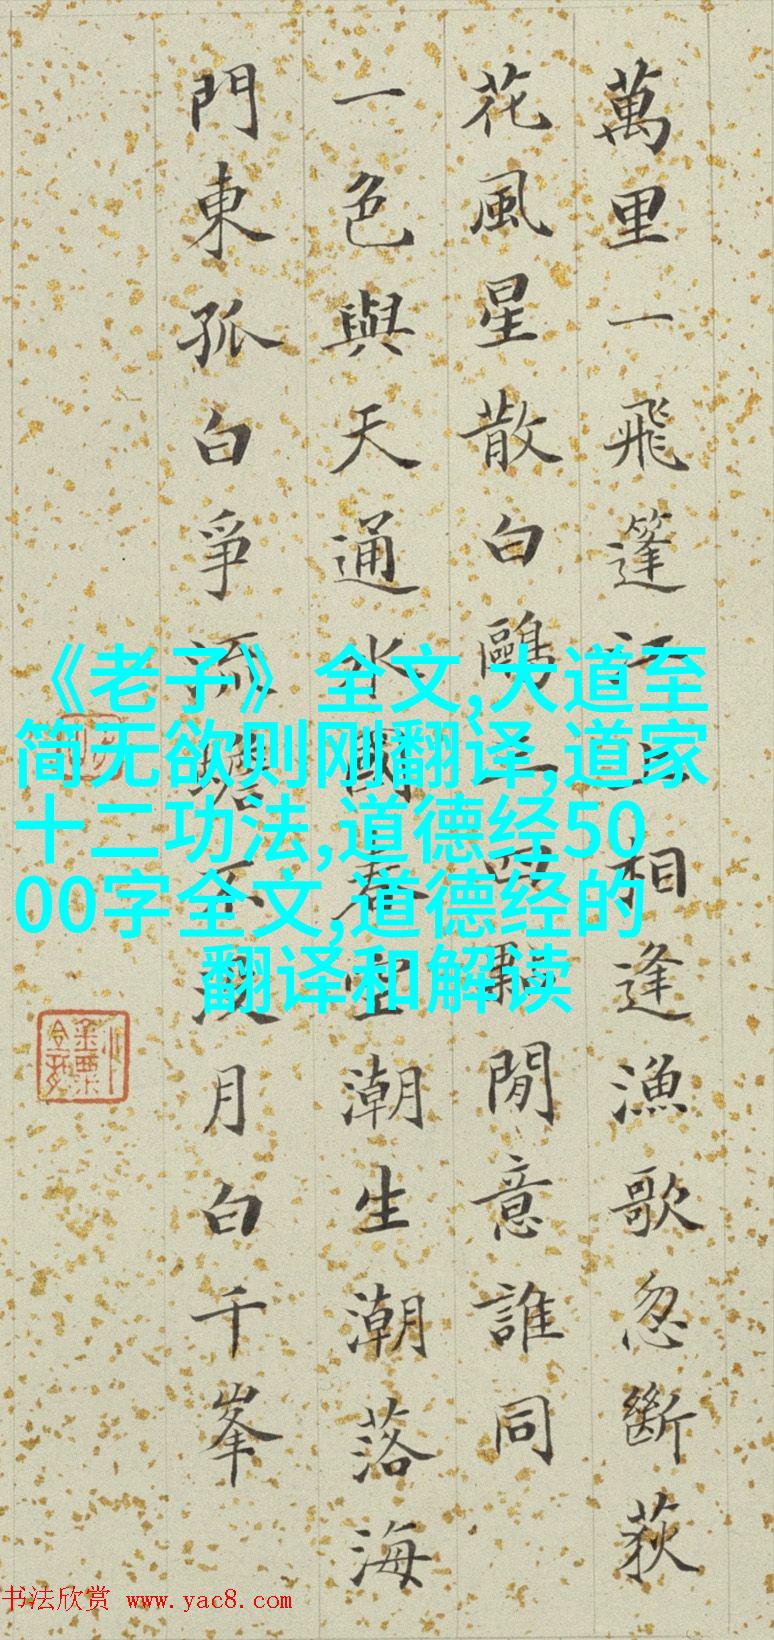 萬里一飛篷江上相逢漁歌忽斷荻
花風星散白鷗三四點閒意誰同
一色與天通水國春空潮生潮落海
門東孤白爭流蟾不没月白千峯
《老子》全文,大道至
简无欲则刚翻译,道家
十二功法,道德经50
00字全文,道德经的
翻译和解读
书法欣赏 www.yac8.com